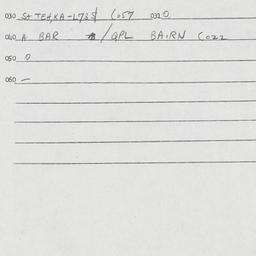 030 St TEUKA-L735 (057 0320
040 A BAR /QPL BAIRN (022
050 0
060 —